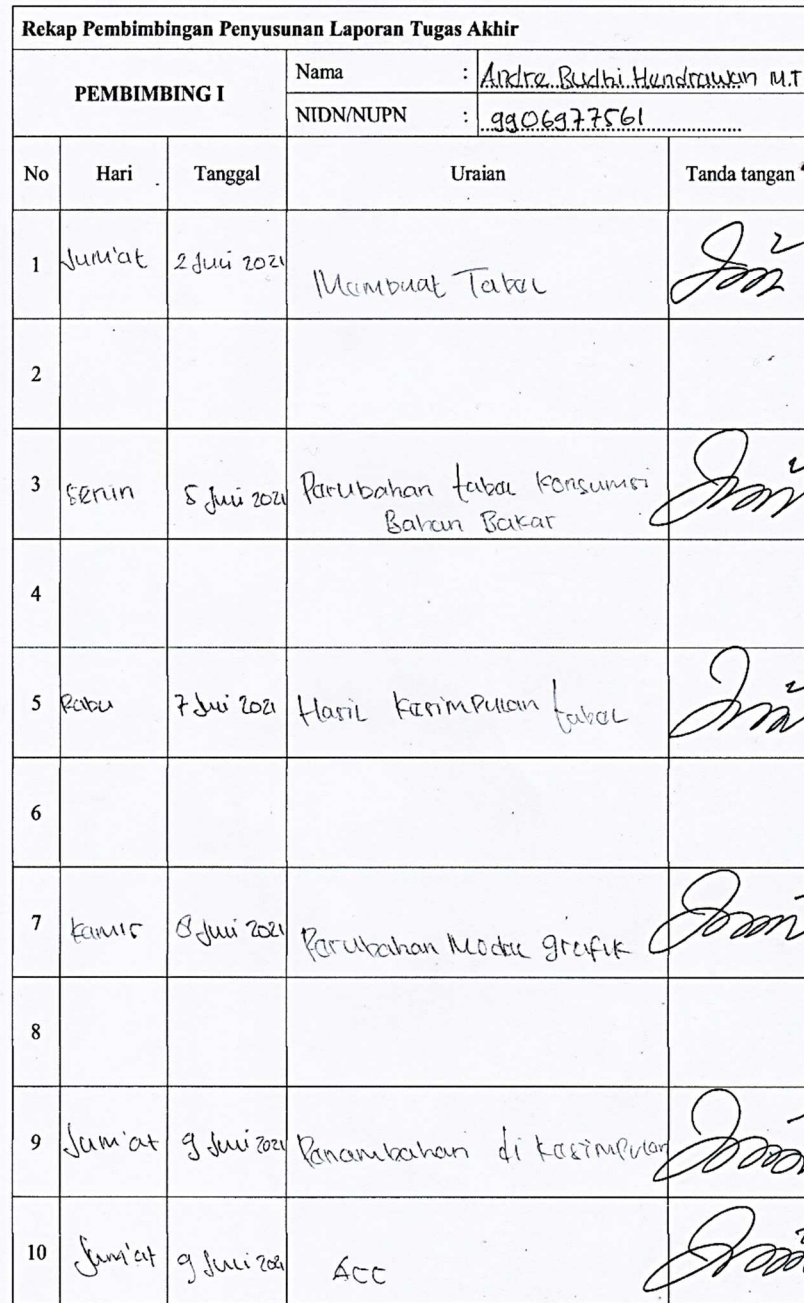 Rekap Pembimbingan Penyusunan Laporan Tugas Akhir
PEMBIMBING I
Nama : Andre Budhi Hendrawan M.T
NIDN/NUPN : 9906977561
No Hari Tanggal Uraian Tanda tangan
1 Jum'at 2 Juli 2021 Membuat Tabel
2
3 Senin 5 Juli 2021 Perubahan tabel konsumsi
Bahan Bakar
4
5 Rabu 7 Juli 2021 Hasil kesimpulan tabel
6
7 Kamis 8 Juli 2021 Perubahan Model grafik
8
9 Jum'at 9 Juli 2021 Penambahan di kesimpulan
10 Jum'at 9 Juli 2021 Acc